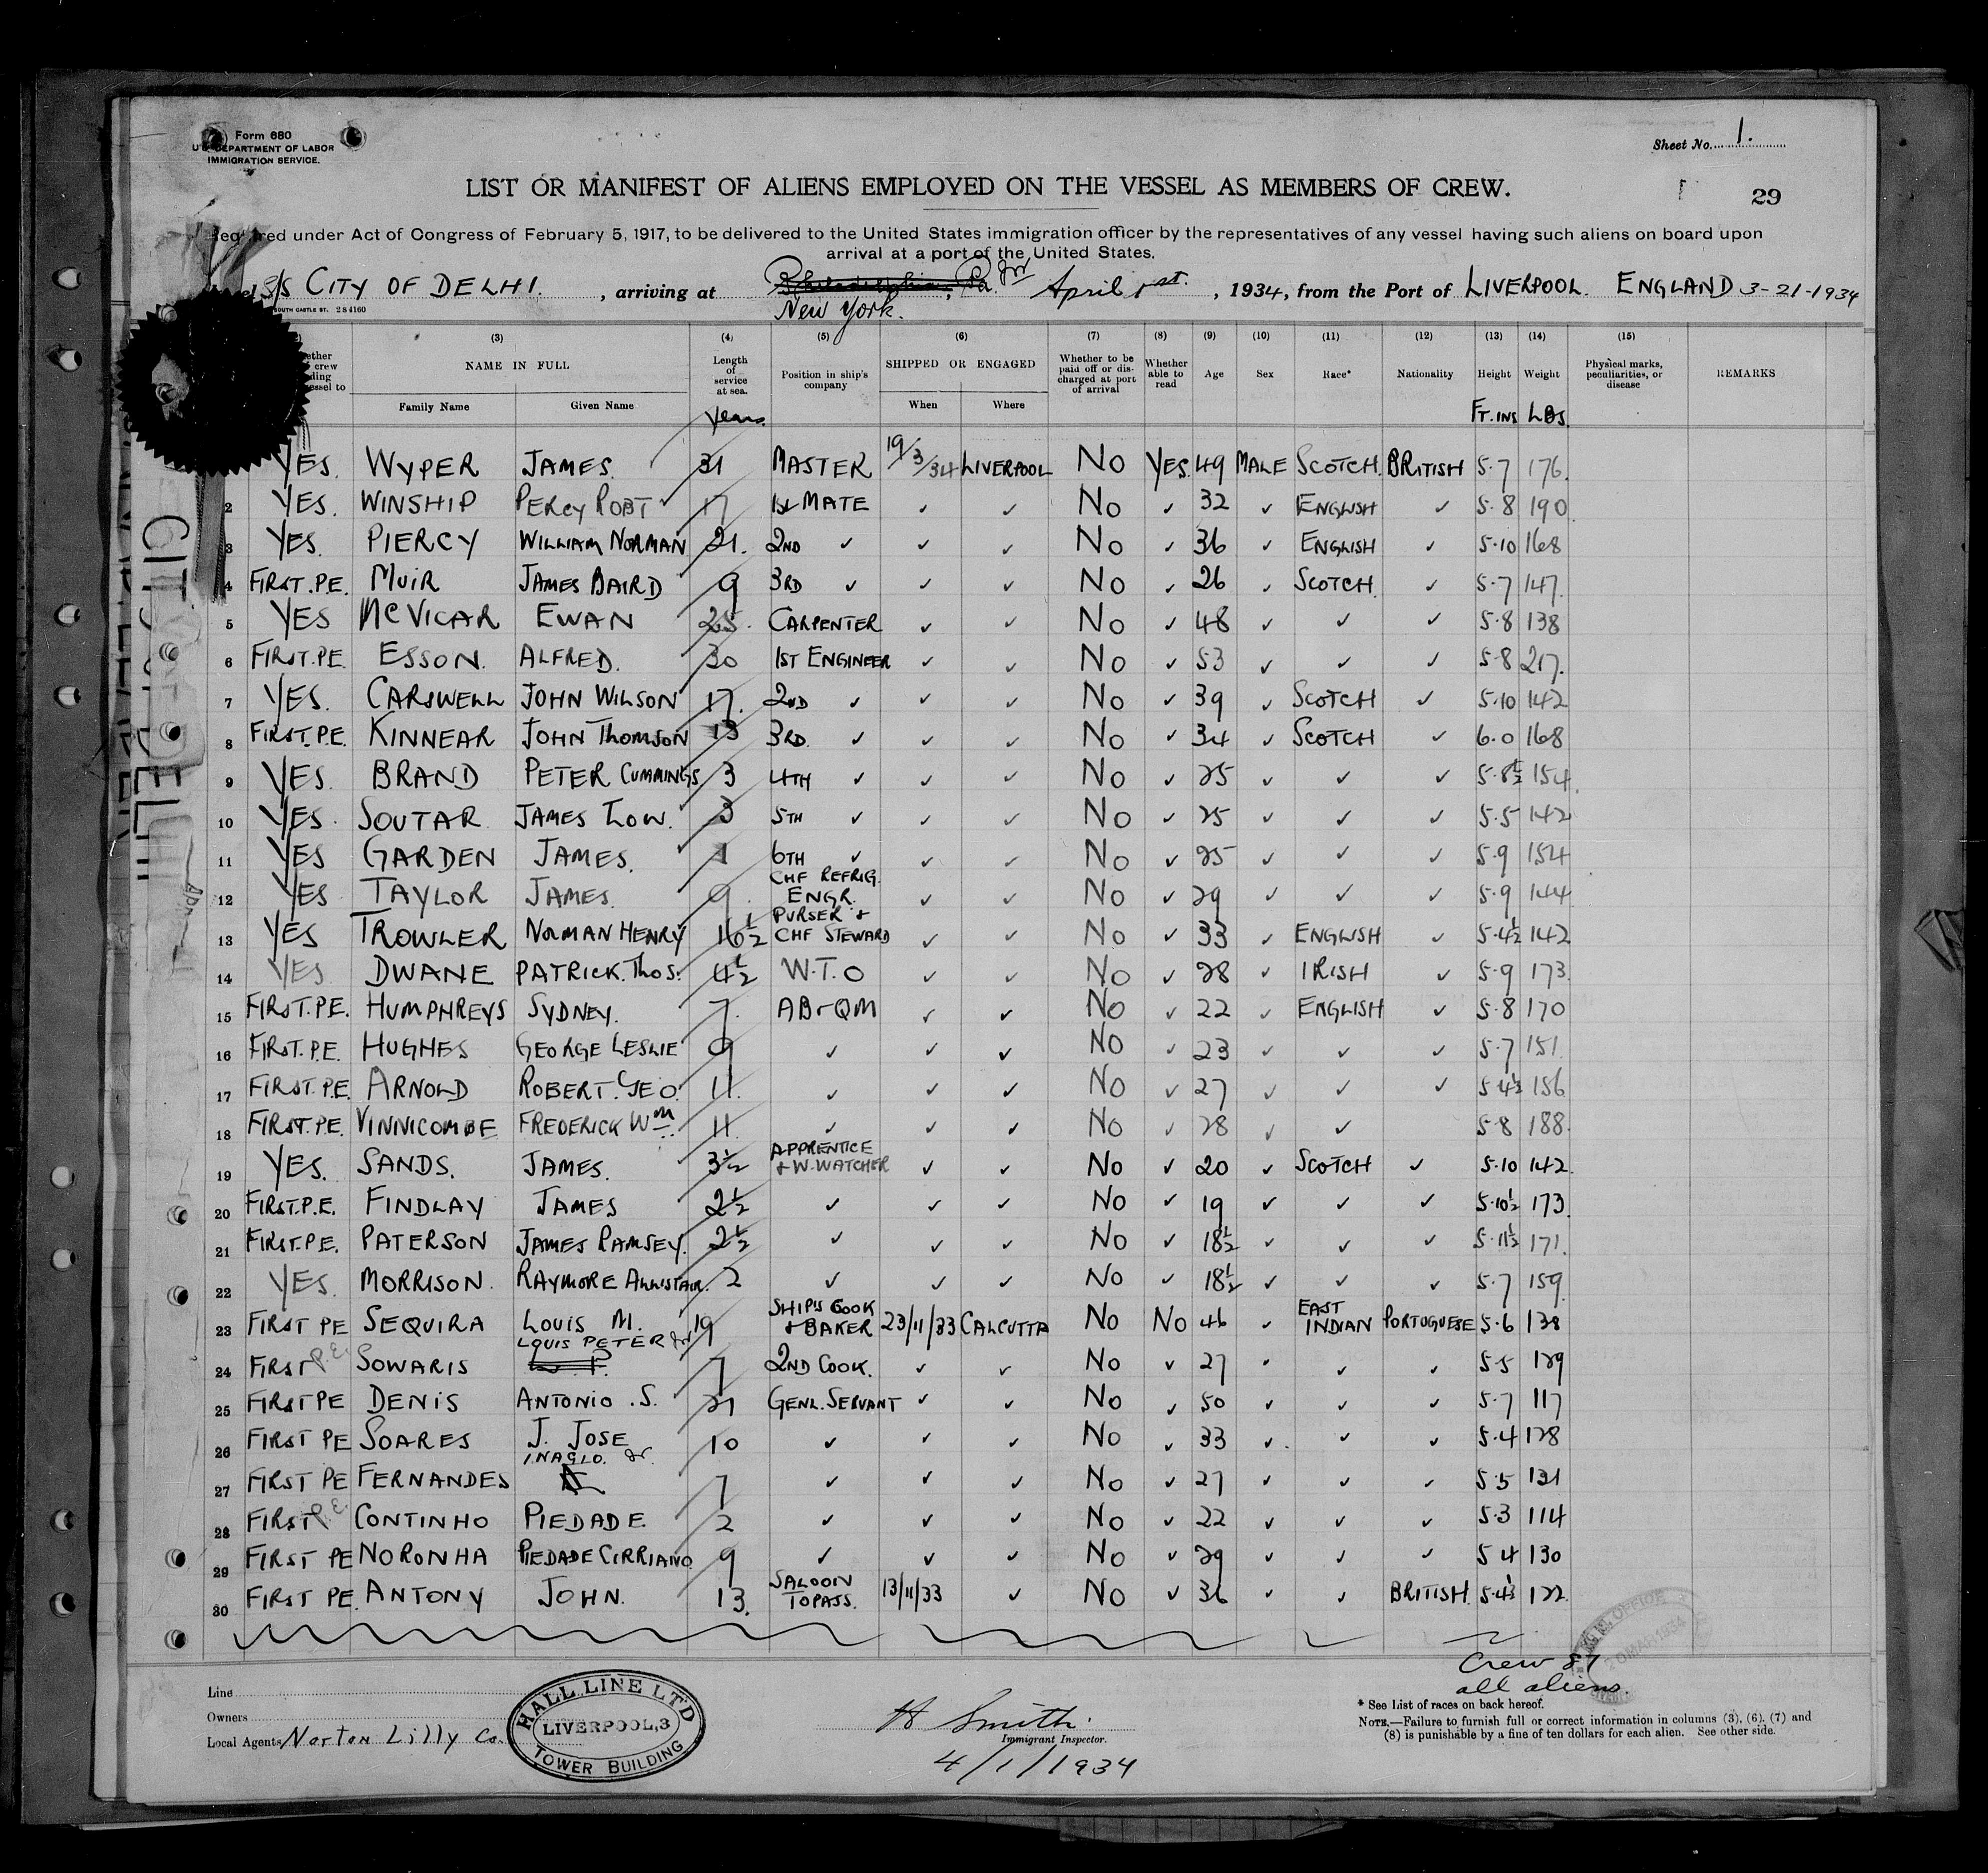 Form 680
U.S. DEPARTMENT OF LABOR
IMMIGRATION SERVICE.
Sheet No. 1.
LIST OR MANIFEST OF ALIENS EMPLOYED ON THE VESSEL AS MEMBERS OF CREW.
29
Required under Act of Congress of February 5, 1917, to be delivered to the United States immigration officer by the representatives of any vessel having such aliens on board upon
arrival at a port of the United States.
S/S CITY OF DELHI. , arriving at Philadelphia, Pa. April 1st. , 1934, from the Port of LIVERPOOL. ENGLAND 3-21-1934
New York.
SOUTH CASTLE ST. 284160
(3) (4) (5) (6) (7) (8) (9) (10) (11) (12) (13) (14) (15)
NAME IN FULL Length of service at sea. Position in ship's company SHIPPED OR ENGAGED Whether to be paid off or discharged at port of arrival Whether able to read Age Sex Race* Nationality Height Weight Physical marks, peculiarities, or disease REMARKS
Family Name Given Name Years When Where FT. INS LBS.
YES. WYPER JAMES. 31 MASTER 19/3/34 LIVERPOOL NO YES. 49 MALE SCOTCH. BRITISH 5.7 176.
2 YES. WINSHIP PERCY ROBT 17 1st MATE ✓ ✓ NO ✓ 32 ✓ ENGLISH ✓ 5.8 190.
3 YES. PIERCY WILLIAM NORMAN 21. 2ND ✓ ✓ ✓ NO ✓ 36 ✓ ENGLISH ✓ 5.10 168
4 FIRST.P.E. MUIR JAMES BAIRD 9 3RD ✓ ✓ ✓ NO ✓ 26 ✓ SCOTCH. ✓ 5.7 147.
5 YES MCVICAR EWAN 25. CARPENTER ✓ ✓ NO ✓ 48 ✓ ✓ ✓ 5.8 138
6 FIRST.P.E. ESSON. ALFRED. 30 1ST ENGINEER ✓ ✓ NO ✓ 53 ✓ ✓ ✓ 5.8 217.
7 YES. CARSWELL JOHN WILSON 17. 2ND ✓ ✓ ✓ NO ✓ 39 ✓ SCOTCH ✓ 5.10 142
8 FIRST.P.E. KINNEAR JOHN THOMSON 13 3RD. ✓ ✓ ✓ NO ✓ 34 ✓ SCOTCH ✓ 6.0 168
9 YES. BRAND PETER CUMMINGS 3 4TH ✓ ✓ ✓ NO ✓ 25 ✓ ✓ ✓ 5.8½ 154.
10 YES. SOUTAR JAMES LOW. 3 5TH ✓ ✓ ✓ NO ✓ 25 ✓ ✓ ✓ 5.5 142
11 YES GARDEN JAMES. 1 6TH ✓ ✓ ✓ NO ✓ 25 ✓ ✓ ✓ 5.9 154
12 YES TAYLOR JAMES. 9. CHF REFRIG. ENGR. ✓ ✓ NO ✓ 29 ✓ ✓ ✓ 5.9 144
13 YES TROWLER NORMAN HENRY 16½ PURSER + CHF STEWARD ✓ ✓ NO ✓ 33 ✓ ENGLISH ✓ 5.4½ 142
14 YES DWANE PATRICK. THOS. 4½ W.T.O ✓ ✓ NO ✓ 28 ✓ IRISH ✓ 5.9 173.
15 FIRST.P.E. HUMPHREYS SYDNEY. 7. AB + QM ✓ ✓ NO ✓ 22 ✓ ENGLISH ✓ 5.8 170
16 FIRST.P.E. HUGHES GEORGE LESLIE 9 ✓ ✓ ✓ NO ✓ 23 ✓ ✓ ✓ 5.7 151.
17 FIRST.P.E ARNOLD ROBERT. GEO. 11. ✓ ✓ ✓ NO ✓ 27 ✓ ✓ ✓ 5.4½ 156
18 FIRST.P.E. VINNICOMBE FREDERICK Wm. 11. ✓ ✓ ✓ NO ✓ 28 ✓ ✓ 5.8 188.
19 YES. SANDS. JAMES. 3½ APPRENTICE + W. WATCHER ✓ ✓ NO ✓ 20 ✓ SCOTCH ✓ 5.10 142.
20 FIRST.P.E. FINDLAY JAMES 2½ ✓ ✓ ✓ NO ✓ 19 ✓ ✓ ✓ 5.10½ 173.
21 FIRST.P.E. PATERSON JAMES RAMSEY. 2½ ✓ ✓ ✓ NO ✓ 18½ ✓ ✓ ✓ 5.11½ 171.
22 YES. MORRISON. RAYMORE ALLISTAIR. 2 ✓ ✓ ✓ NO ✓ 18½ ✓ ✓ ✓ 5.7 159.
23 FIRST PE SEQUIRA LOUIS M. 19 SHIPS COOK + BAKER 23/11/33 CALCUTTA NO NO 46 ✓ EAST INDIAN PORTUGUESE 5.6 138
24 FIRST P.E. SOWARIS LOUIS PETER 7 2ND COOK. ✓ ✓ NO ✓ 27 ✓ ✓ ✓ 5.5 129
25 FIRST PE DENIS ANTONIO .S. 21 GENL. SERVANT ✓ ✓ NO ✓ 50 ✓ ✓ ✓ 5.7 117
26 FIRST PE SOARES J. JOSE 10 ✓ ✓ ✓ NO ✓ 33 ✓ ✓ ✓ 5.4 128
27 FIRST PE FERNANDES INAGLO. 7 ✓ ✓ ✓ NO ✓ 27 ✓ ✓ ✓ 5.5 131
28 FIRST P.E. CONTINHO PIEDADE. 2 ✓ ✓ ✓ NO ✓ 22 ✓ ✓ ✓ 5.3 114
29 FIRST PE NORONHA PIEDADE CIRRIANO 9 ✓ ✓ ✓ NO ✓ 29 ✓ ✓ ✓ 5 4 130
30 FIRST PE. ANTONY JOHN. 13. SALOON TOPASS. 13/11/33 ✓ NO ✓ 36 ✓ ✓ BRITISH. 122
CITY OF DELHI
Crew 87
all aliens.
Line
Owners
Local Agents Norton Lilly Co.
HALL LINE LTD
LIVERPOOL, 3
TOWER BUILDING
H Smith.
Immigrant Inspector.
4/1/1934
* See List of races on back hereof.
NOTE.—Failure to furnish full or correct information in columns (3), (6), (7) and
(8) is punishable by a fine of ten dollars for each alien. See other side.